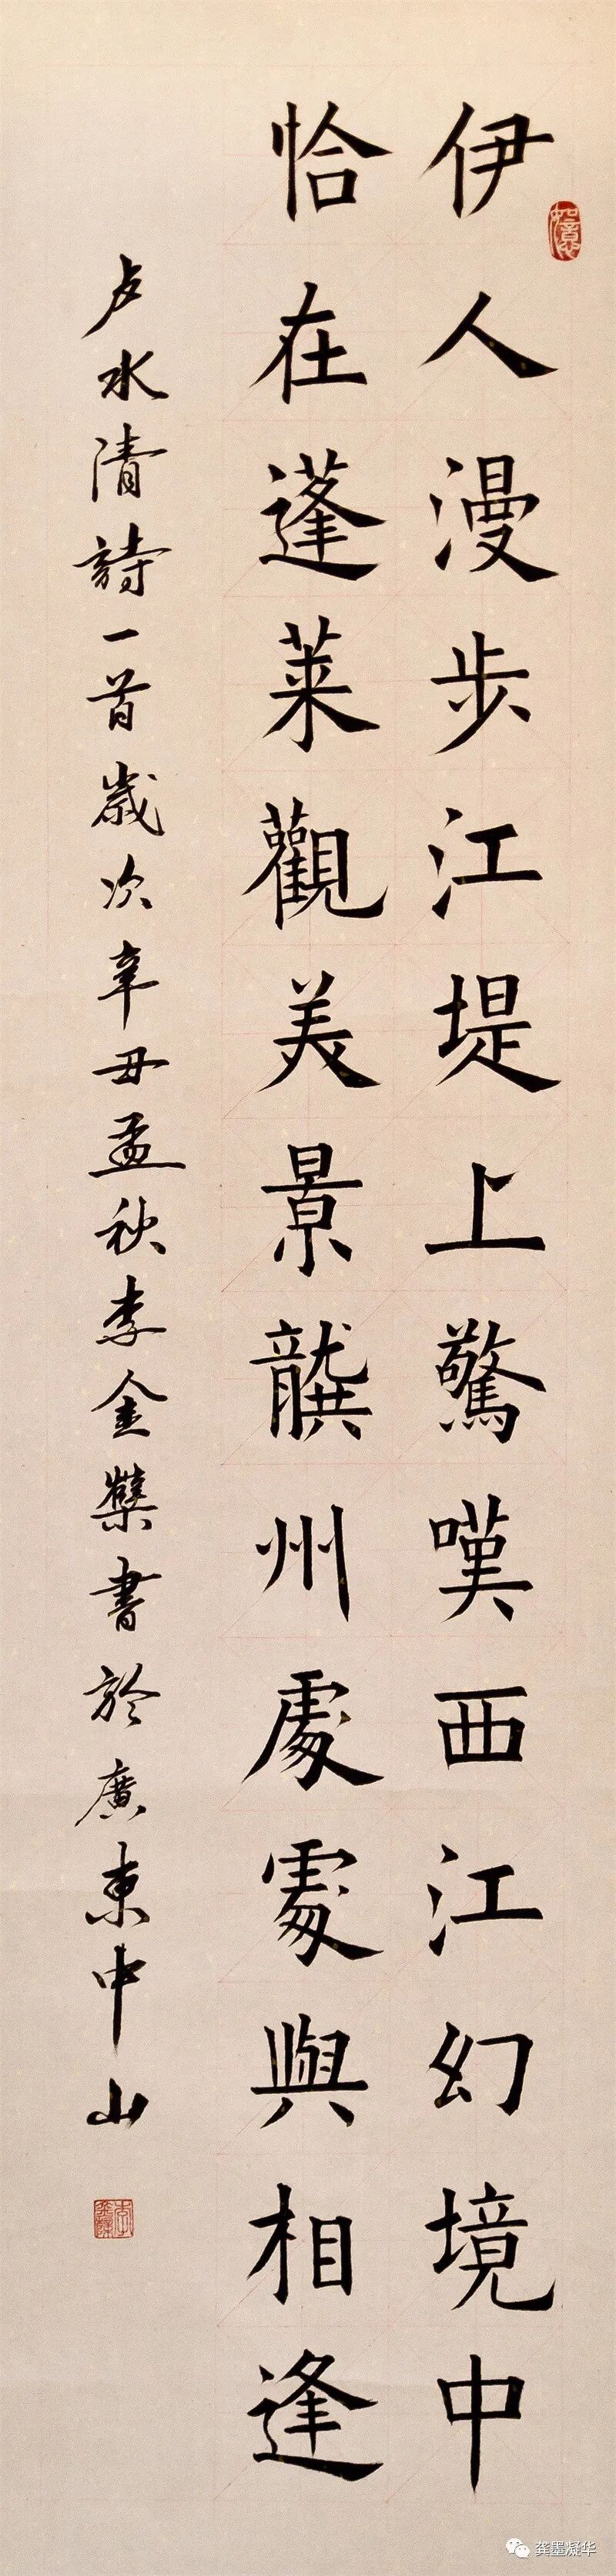 如意
伊人漫步江堤上驚嘆西江幻境中
恰在蓬萊觀美景龔州處處與相逢
卢水清詩一首歲次辛丑孟秋李金蘗書於廣東中山
龚墨凝华